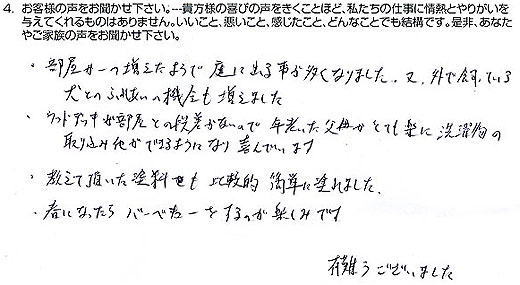 4. お客様の声をお聞かせ下さい。---貴方様の喜びの声をきくことほど、私たちの仕事に情熱とやりがいを
与えてくれるものはありません。いいこと、悪いこと、感じたこと、どんなことでも結構です。是非、あなた
やご家族の声をお聞かせ下さい。
・部屋が一つ増えたようで 庭に出る事が多くなりました。又、外で飼っている
犬とのふれあいの機会も増えました
・ウッドデッキが部屋との段差がないので 年老いた父母がとても楽に洗濯物の
取り込み 化ができるようになり 喜んでいます
・教えて頂いた塗料も 比較的 簡単に塗れました。
・春になったら バーベキューをするのが楽しみです
有難うございました